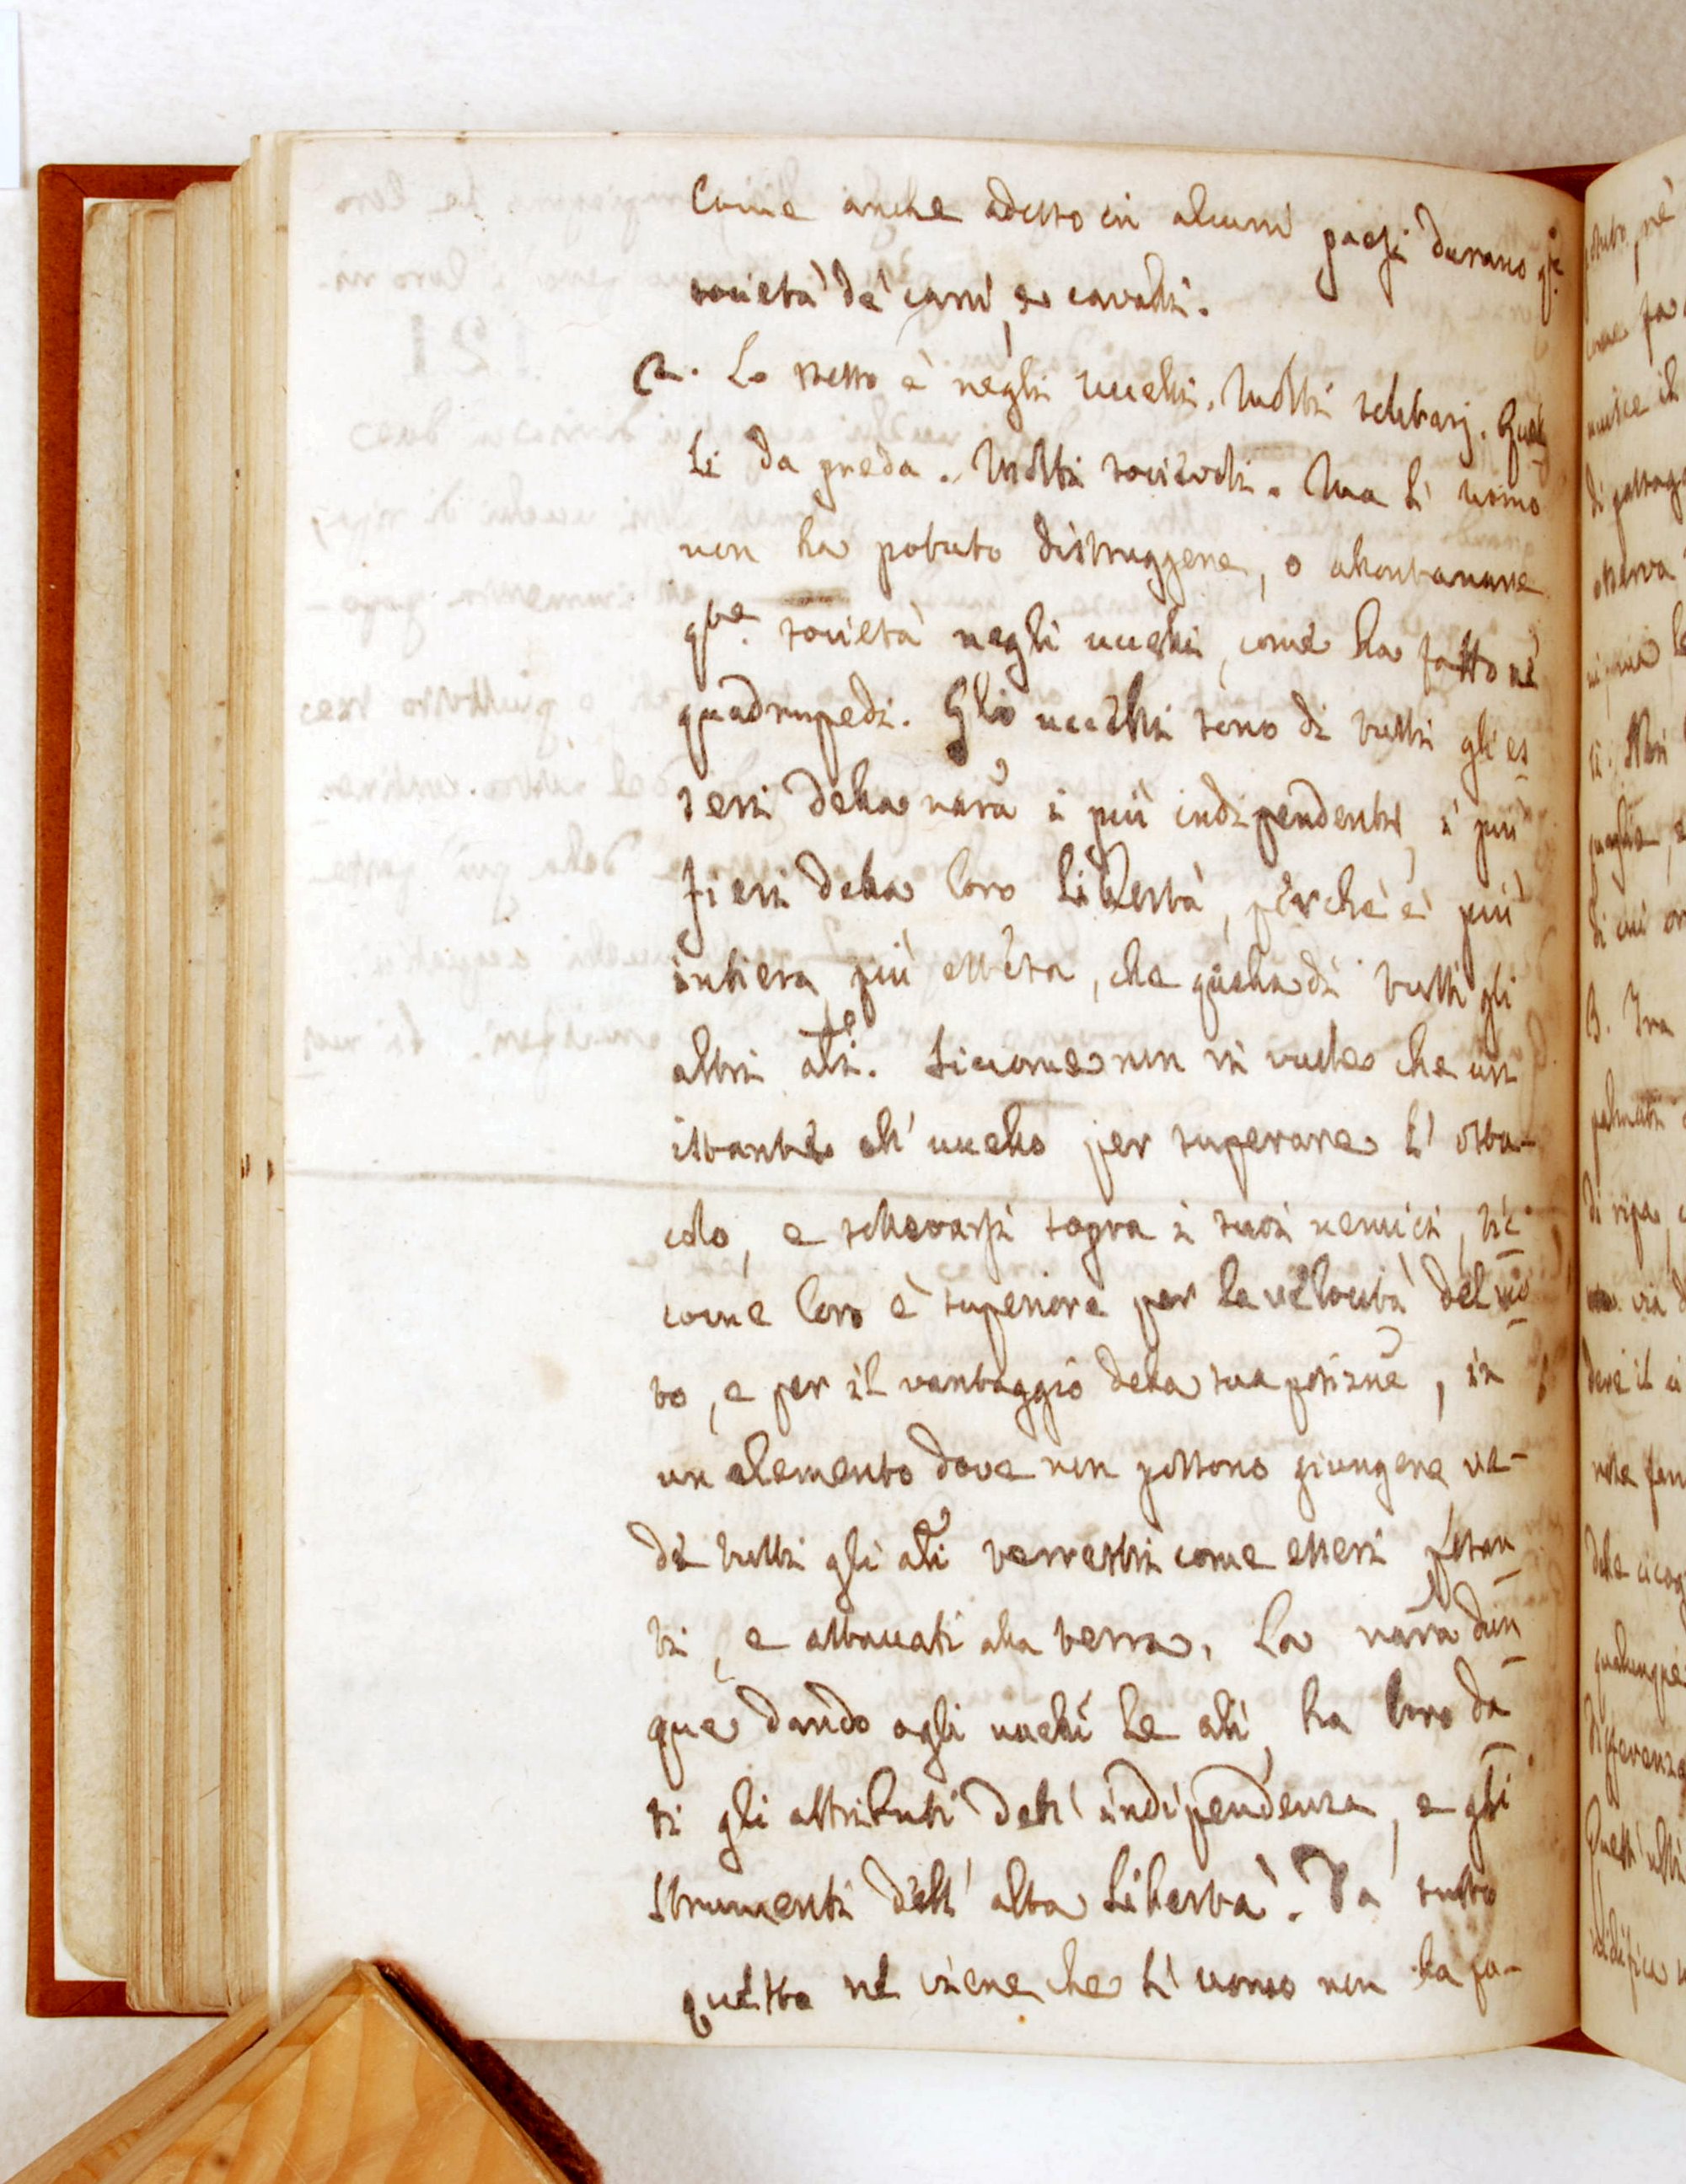 Come anche adesso in alcuni paesi durano q.te
società de' cani, e cavalli.
2. Lo stesso è negli uccelli. Molti selvarj. Quel
li da preda. Molti sociévoli. Ma l' uomo
non ha potuto distruggere, o allontanare
q.ve società negli uccelli, come ha fatto ne'
quadrupedi. Gli uccelli sono di tutti gli es
seri della nara i più indipendenti, i più
fieri della loro libertà, perchè è più
intiera, più estesa, che quella di tutti gli
altri ali. Siccome non vi vuole che un
istante all' uccello per superare l' osta-
colo, e sollevarsi sopra i suoi nemici, sic
come loro è superiore per la velocità del mo
to, e per il vantaggio della sua posizne, in
un elemento dove non possono giungere, ve-
de tutti gli ali terrestri come esseri pesan
ti, e attaccati alla terra. La nara dun
que dando agli uccelli le ali, ha loro da
ti gli attributi dell' indipendenza, e gli
strumenti dell' alta libertà. Da tutto
questo ne viene che l' uomo non ha po-